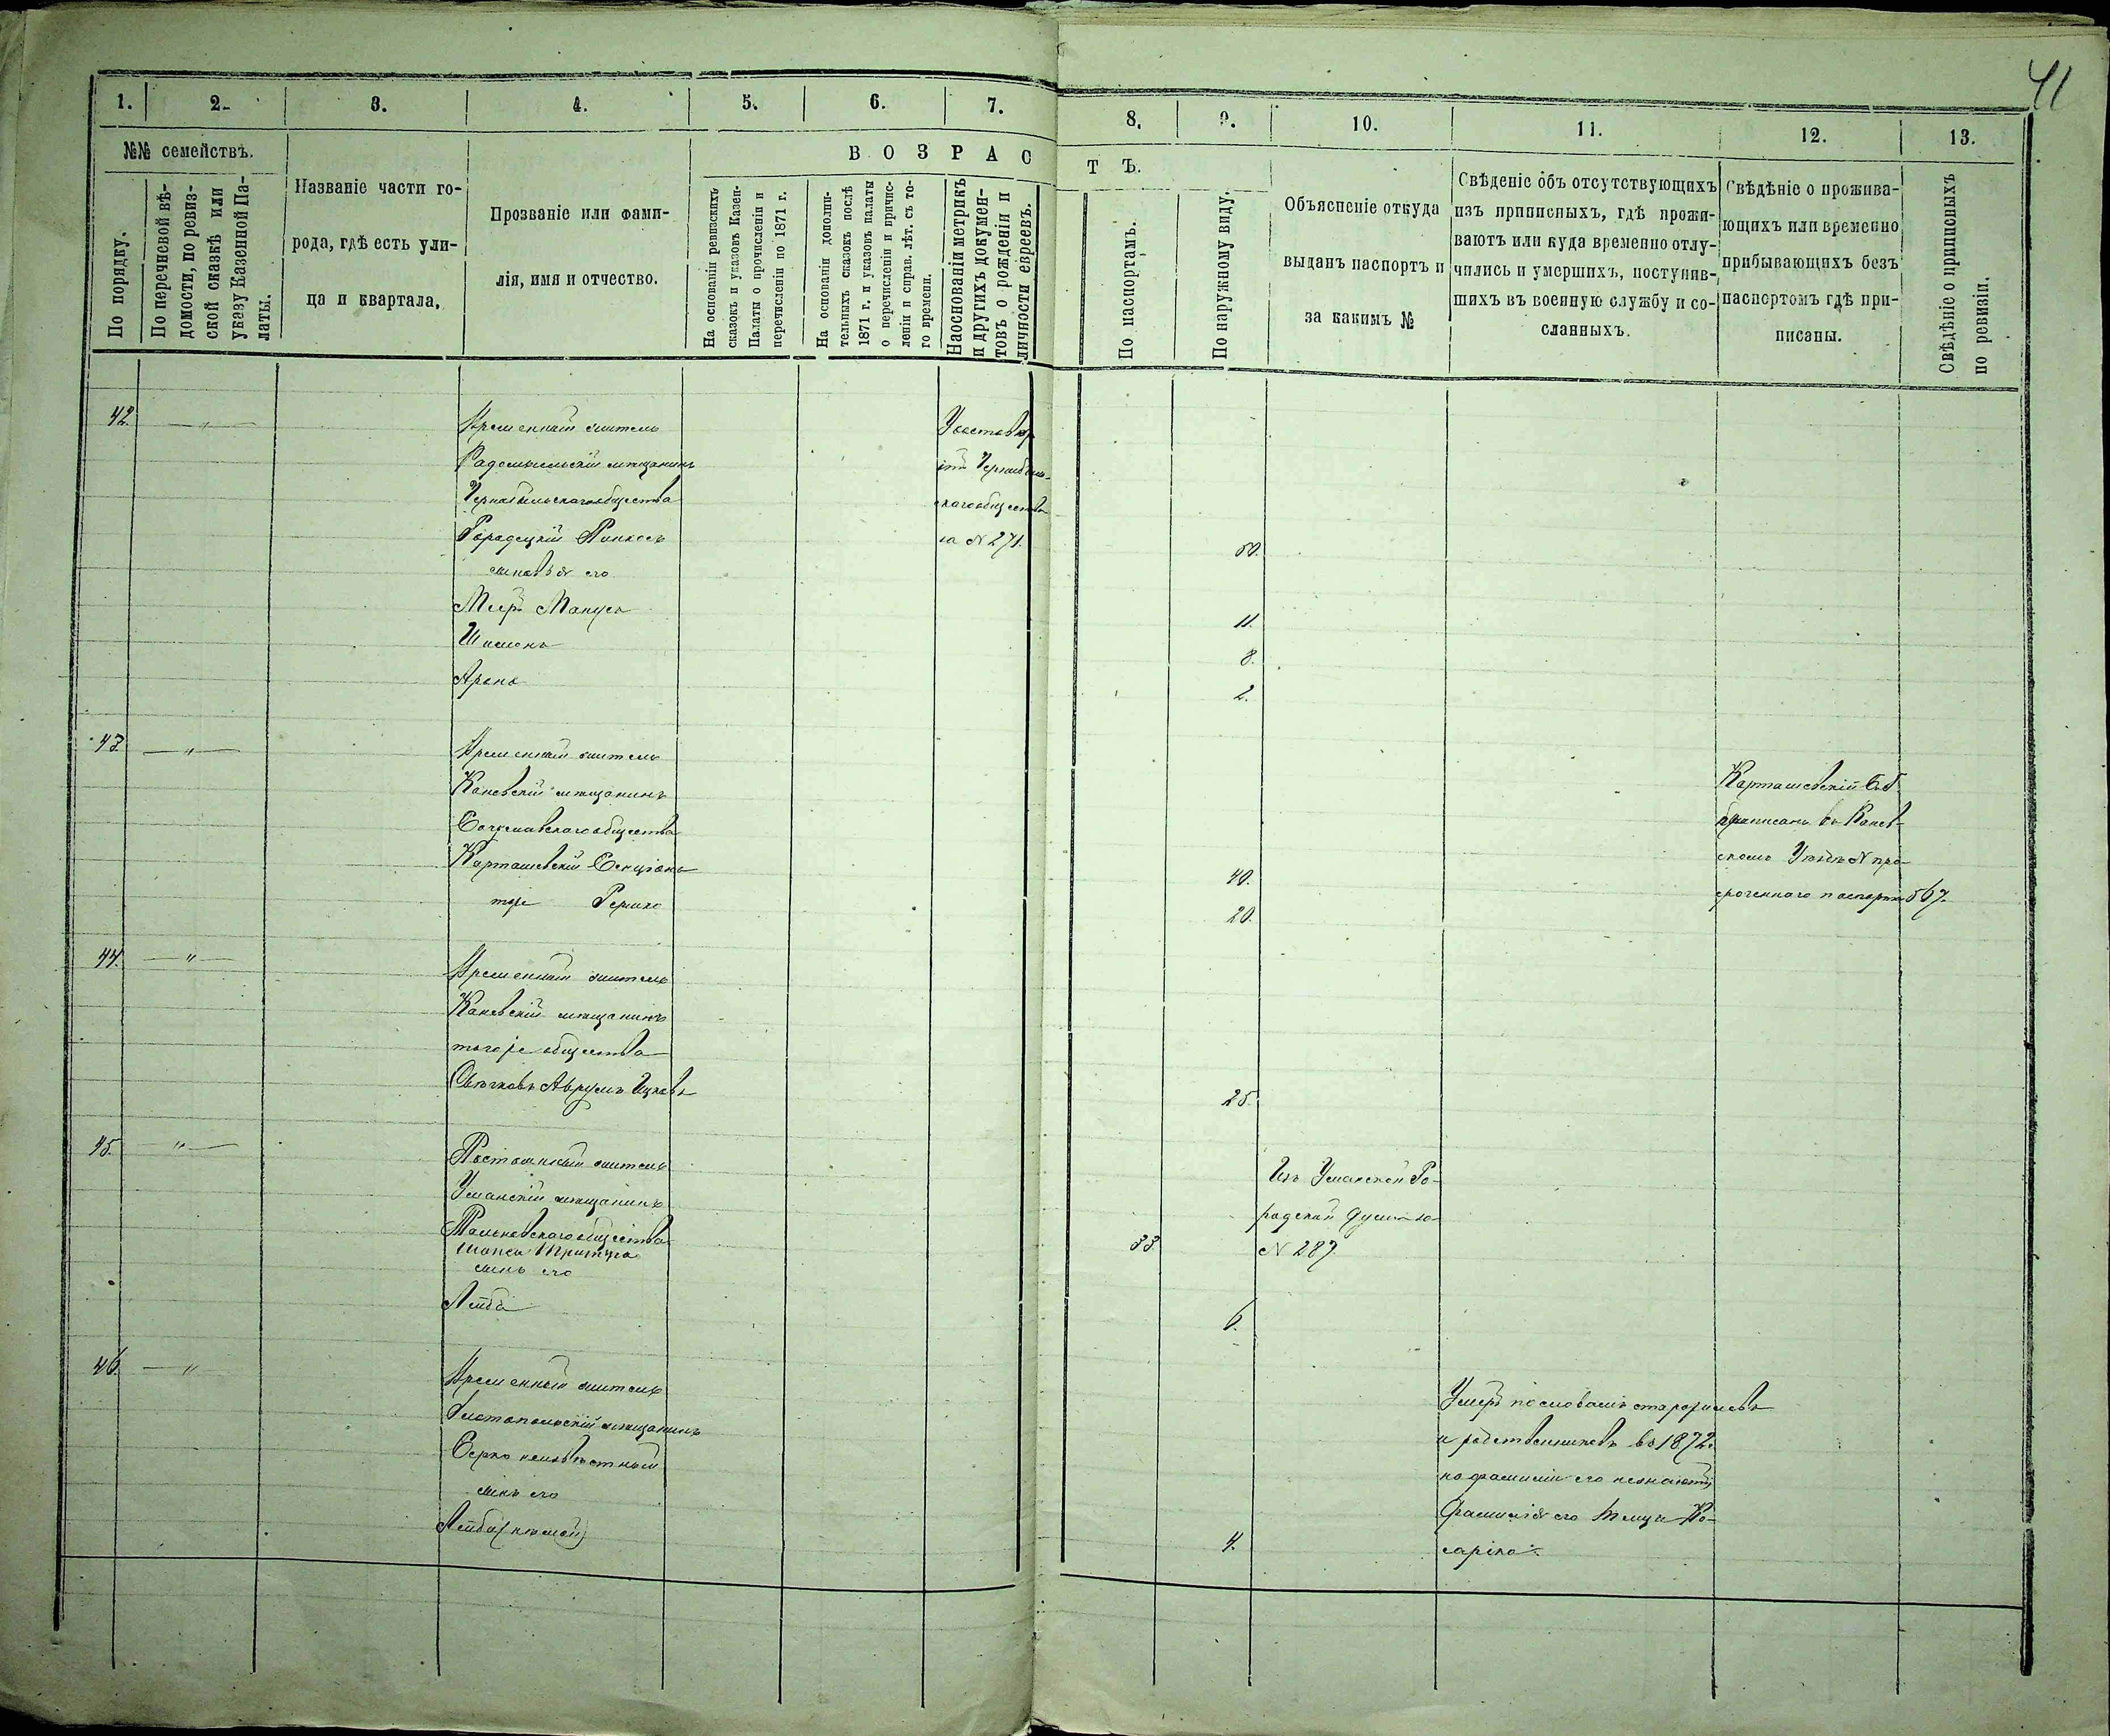 41
1. 2. 3. 4. 5. 6. 7. 8. 9. 10. 11. 12. 13.
№№ семействъ.
По порядку.
По перечневой вѣ-
домости, по ревиз-
ской сказкѣ или
указу Казенной Па-
латы.
Названіе части го-
рода, гдѣ есть ули-
ца и квартала,
Прозваніе или фами-
лія, имя и отчество.
ВОЗРАСТЪ.
На основаніи ревизскихъ
сказокъ и указовъ Казен-
Палаты о прочисленіи и
перечисленіи по 1871 г.
На основаніи дополни-
тельныхъ сказокъ послѣ
1871 г. и указовъ палаты
о перечисленіи и причис-
леніи и справ. лѣт. съ то-
го времени.
На основаніи метрикъ
и другихъ докумен-
товъ о рожденіи и
личности евреевъ.
По паспортамъ.
По наружному виду.
Объясненіе откуда
выданъ паспортъ и
за какимъ №
Свѣденіе объ отсутствующихъ
изъ приписныхъ, гдѣ прожи-
ваютъ или куда временно отлу-
чились и умершихъ, поступив-
шихъ въ военную службу и со-
сланныхъ.
Свѣдѣніе о прожива-
ющихъ или временно
прибывающихъ безъ
паспортомъ гдѣ при-
писаны.
Свѣдѣніе о приписныхъ
по ревизіи.
42. — " —
Временный житель
Радомысльский мещанинъ
Чернобыльскаго общества
Городецкій Пинхосъ 50.
сыновья его
Меер Манусъ 11.
Шимонъ 8.
Аронъ 2.
Чернобыль-
скаго общества
за № 271.
43. — " —
Временный житель
Каневскій мещанинъ
Богуславскаго общества
Карташевскій 40.
тоже Гершко 20.
Карташевскій
приписанъ въ Канев-
скомъ Уездѣ № про-
сроченнаго паспорта 567.
44. — " —
Временный житель
Каневскій мещанинъ
того же общества
Аврумъ Ицковъ 25.
45. — " —
Постоянный житель
Уманскій мещанинъ
Тальновскаго общества
33.
сынъ его
Лейба 6.
Изъ Уманской Го-
родской Думы за
№ 287
46. — " —
Временный житель
мещанинъ
Берко неизвѣстный
сынъ его
Лейба (немой) 4.
Умеръ по словамъ старожиловъ
и родственниковъ въ 1872 г.
но фамиліи его незнаютъ
Фамилія его